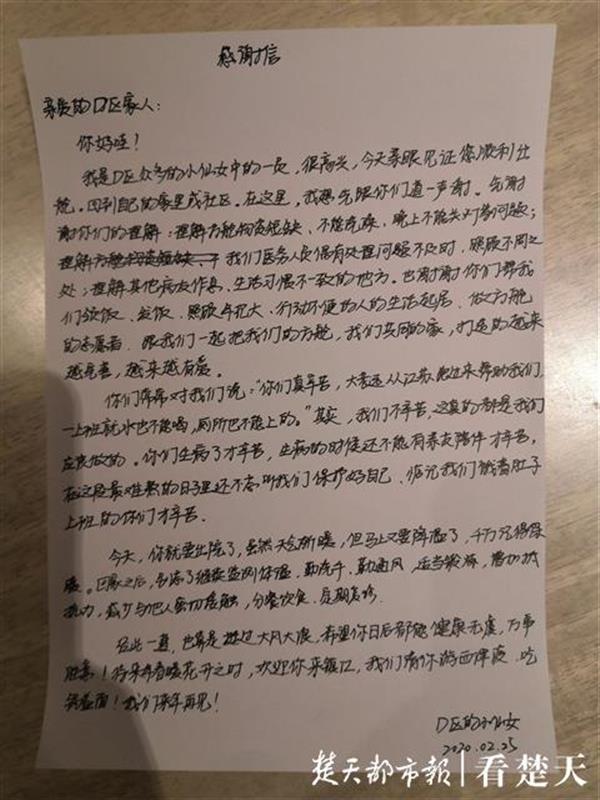 感谢信
亲爱的D区家人：
你好哇！
我是D区众多的小仙女中的一员，很高兴，今天亲眼见证您顺利出
舱。回到自己的家里或社区。在这里，我想先跟你们道一声谢。先谢
谢你们的理解：理解方舱物资短缺、不能洗澡、晚上不能关灯等问题；
我们医务人员偶有处理问题不及时，照顾不周之
处；理解其他病友作息、生活习惯不一致的地方。也谢谢你们帮我
们领饭、发饭、照顾年纪大、行动不便的人的生活起居，做方舱
的志愿者，跟我们一起把我们的方舱，我们共同的家，打造的越来
越完善，越来越有爱。
你们常常对我们说："你们真辛苦，大老远从江苏跑过来帮助我们，
一上班就水也不能喝，厕所也不能上的。"其实，我们不辛苦，这真的都是我们
应该做的。你们生病了才辛苦，生病的时候还不能有亲友陪伴才辛苦，
在这段最难熬的日子里还不忘叫我们保护好自己、惦记我们饿着肚子
上班的你们才辛苦。
今天，你就要出院了，虽然天气渐暖，但马上又要降温了，千万记得保
暖。回家之后，别忘了继续监测体温，勤洗手，勤通风，适当锻炼，增加抗
抵力，减少与他人密切接触，分餐饮食，定期复诊。
经此一遭，也算是挺过大风大浪，希望你日后都能健康无虞，万事
胜意！待来年春暖花开之时，欢迎你来镇江，我们请你游西津渡、吃
锅盖面！我们来年再见！
D区的小仙女
2020.02.25
楚天都市报 | 看楚天